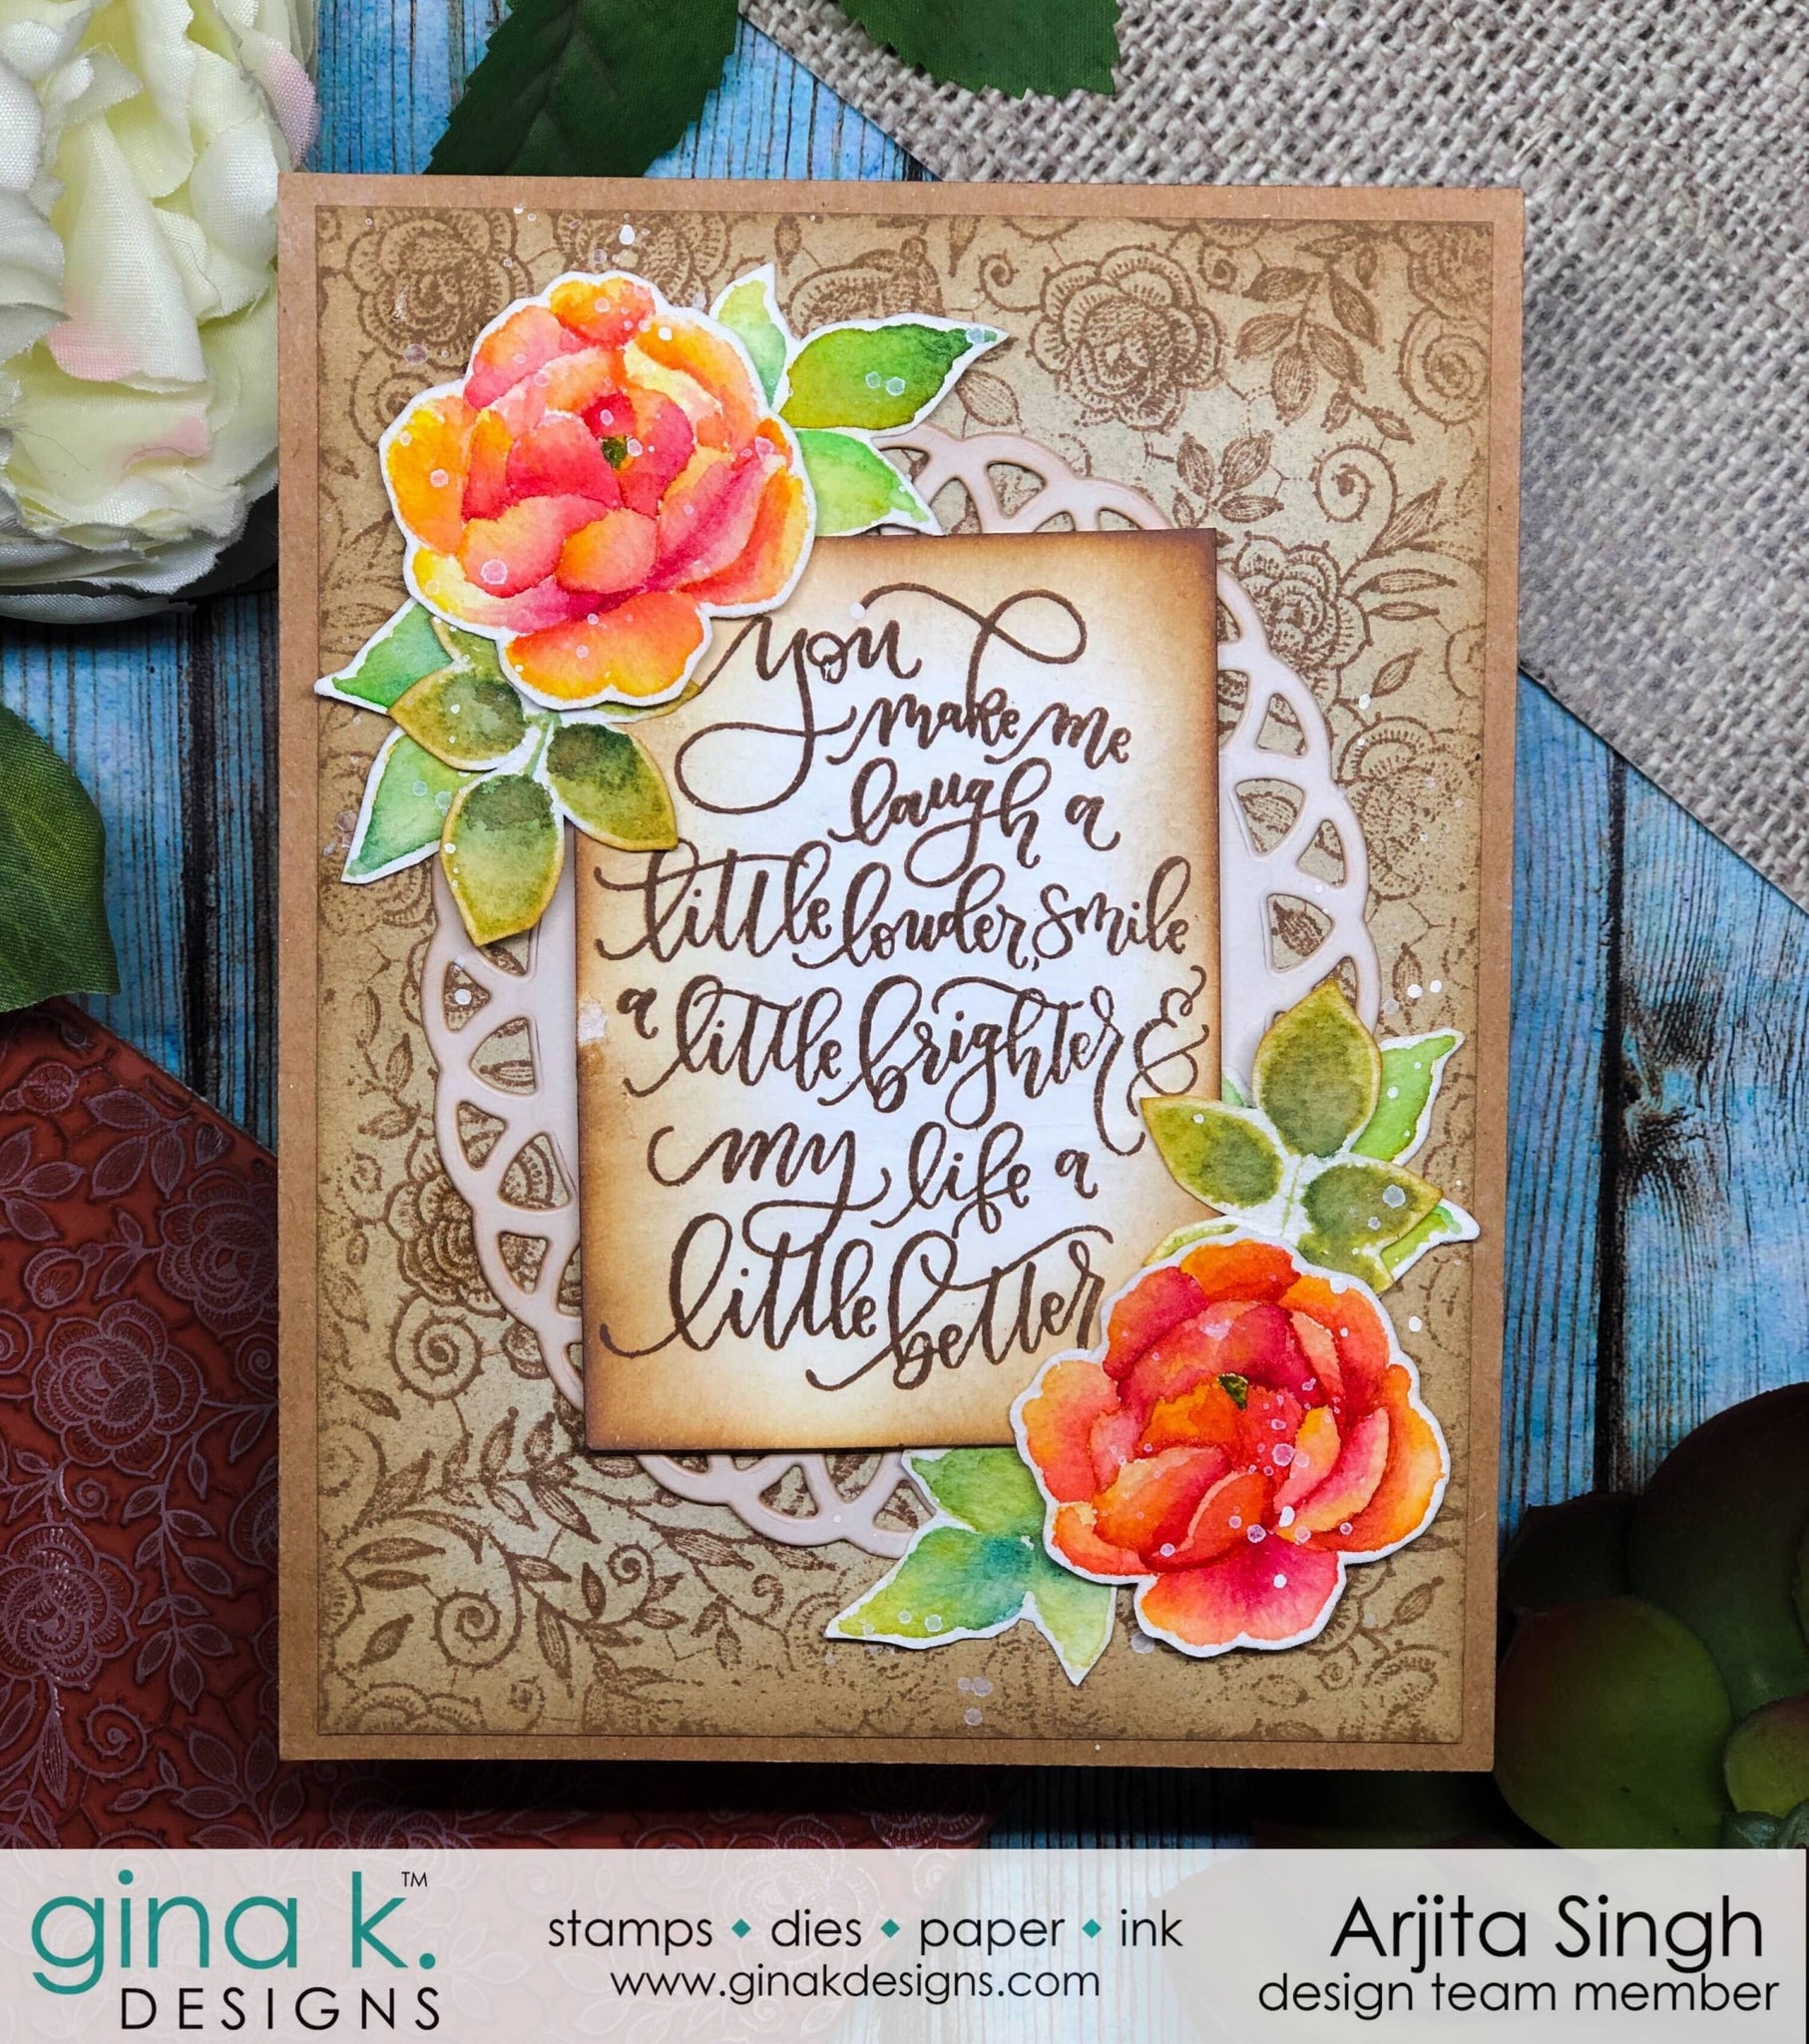 you
make me
laugh a
little louder, smile
a little brighter &
my life a
little better
gina k.™
DESIGNS
stamps ◆ dies ◆ paper ◆ ink
www.ginakdesigns.com
Arjita Singh
design team member